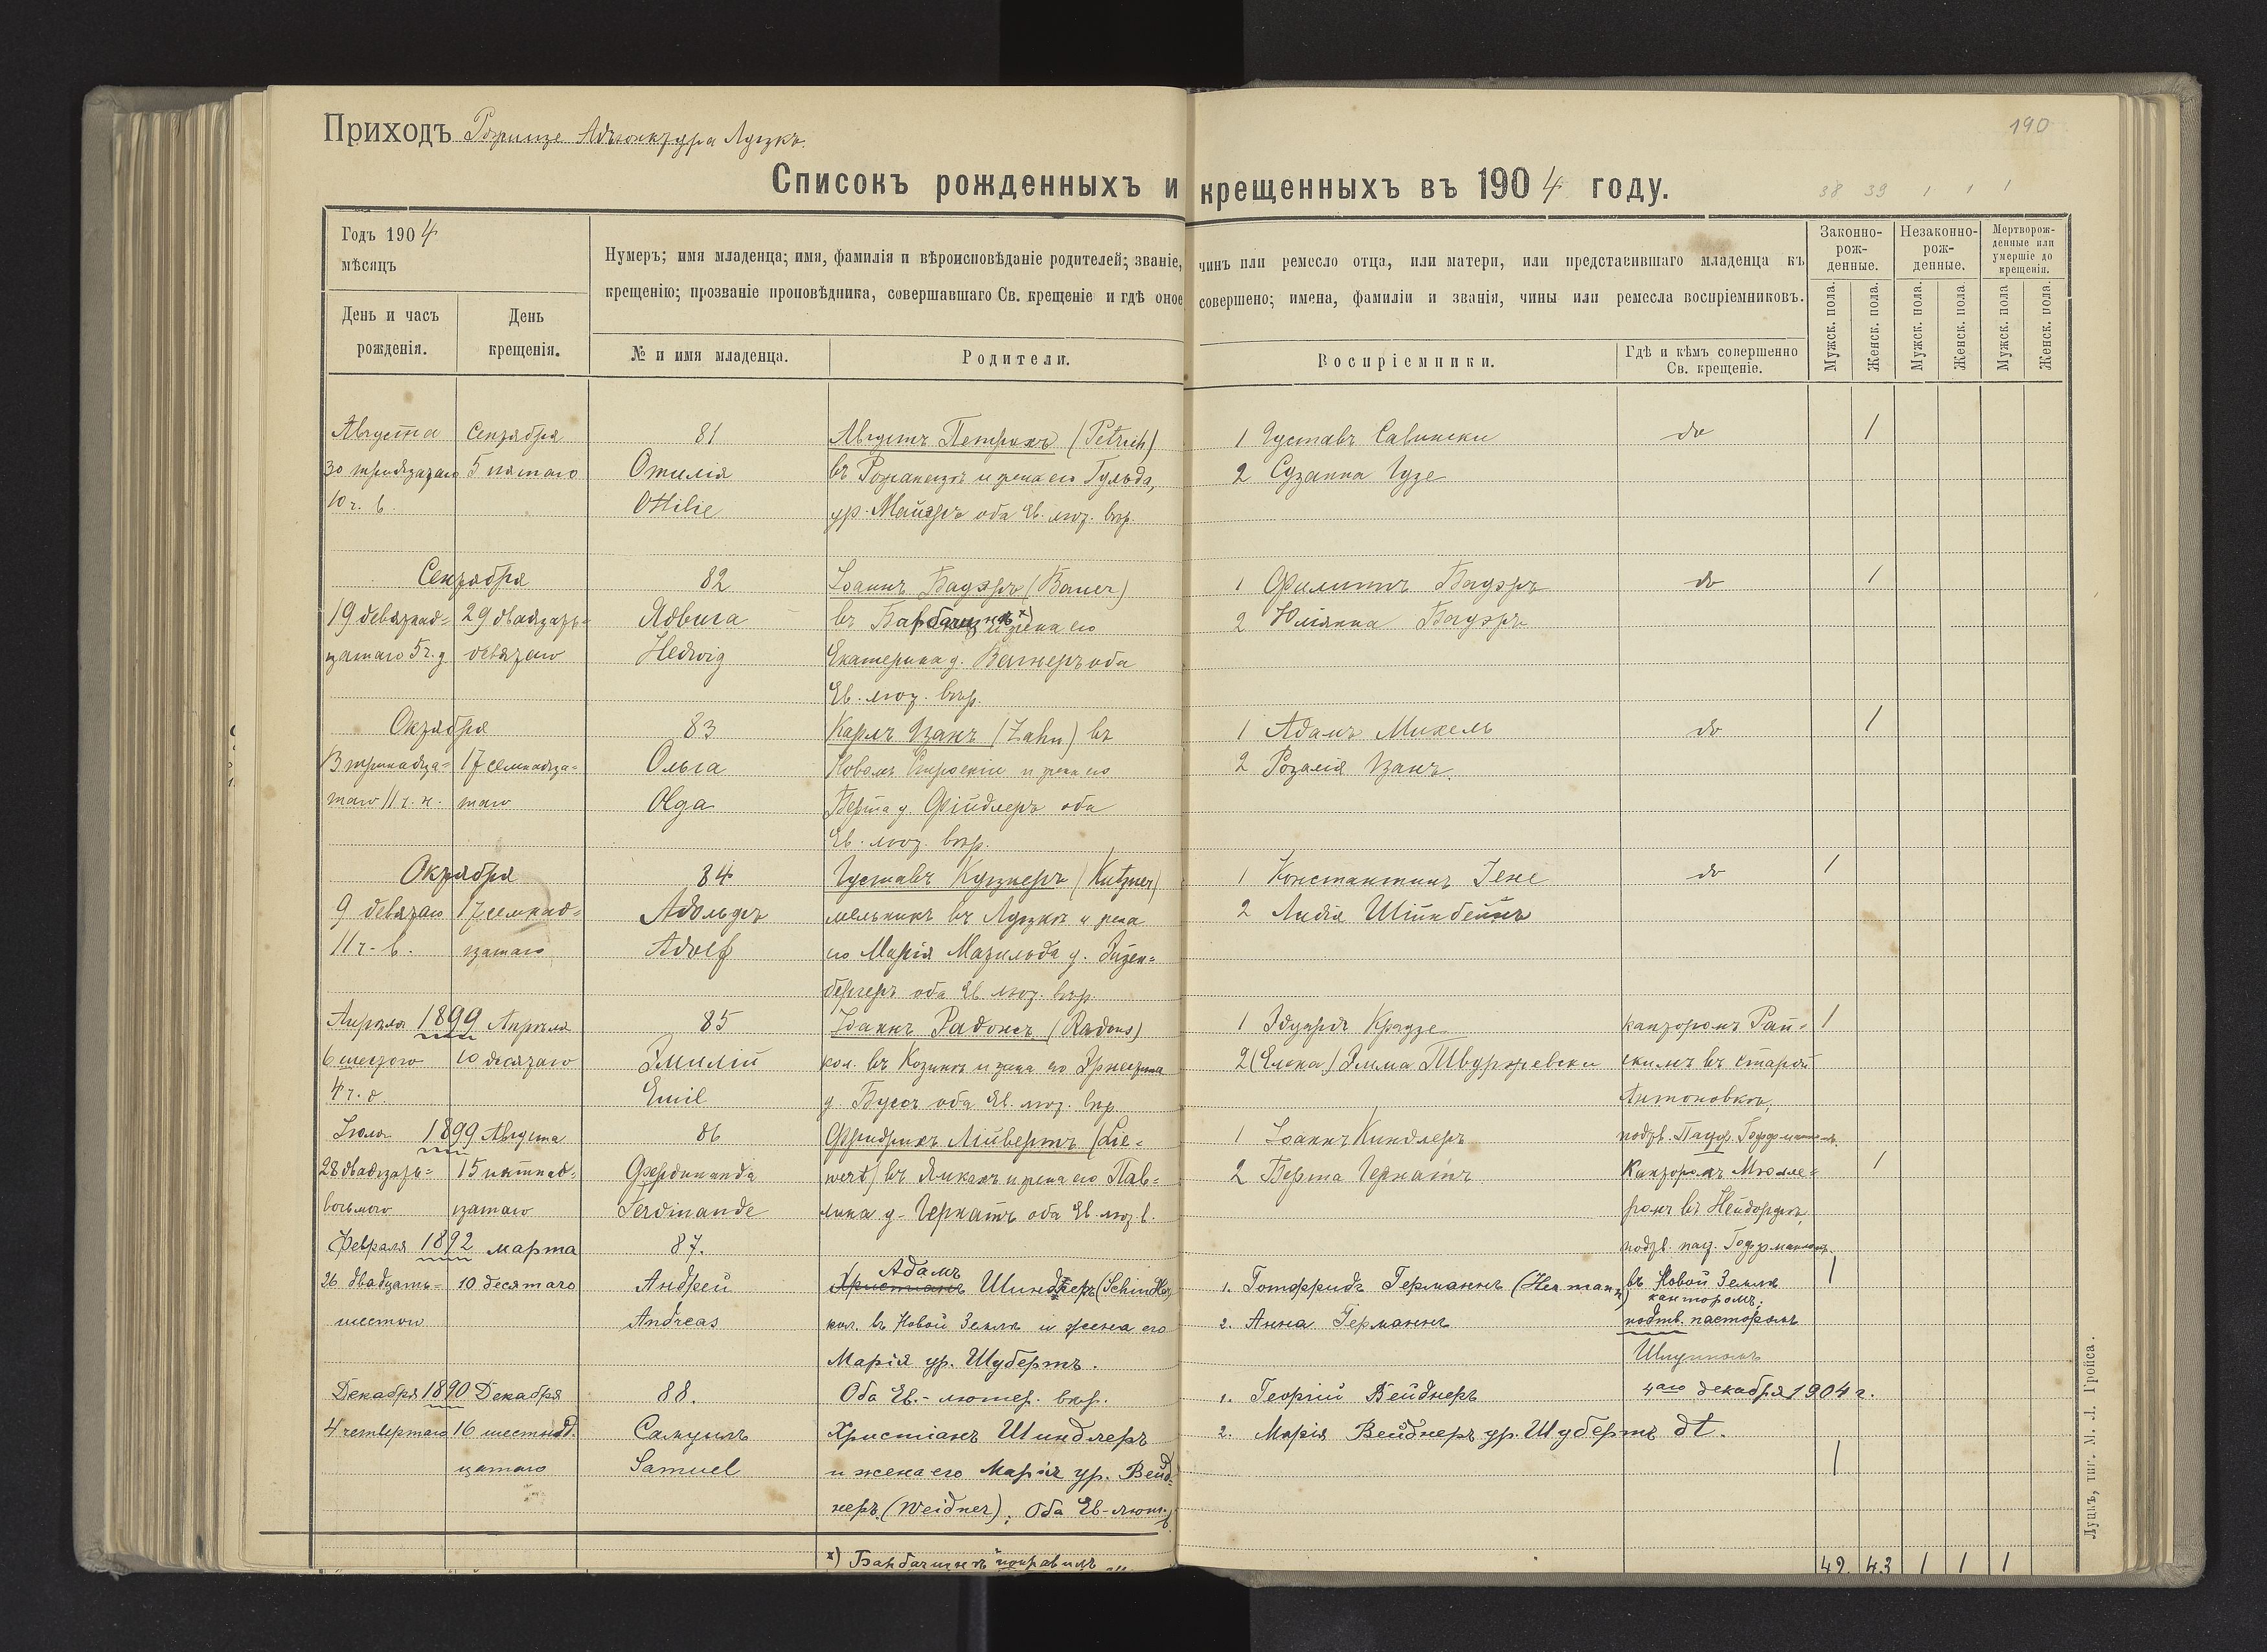 190
Приходъ Рожище Адъюнктура Луцкъ.
Списокъ рожденныхъ и крещенныхъ въ 1904 году.
38 39 1 1 1
Годъ 1904
мѣсяцъ
День и часъ рожденія.
День крещенія.
Нумеръ; имя младенца; имя, фамилія и вѣроисповѣданіе родителей; званіе, чинъ или ремесло отца, или матери, или представившаго младенца къ
крещенію; прозваніе проповѣдника, совершавшаго Св. крещеніе и гдѣ оное совершено; имена, фамиліи и званія, чины или ремесла воспріемниковъ.
№ и имя младенца.
Родители.
Воспріемники.
Гдѣ и кѣмъ совершенно Св. крещеніе.
Законно-рож-денные.
Незаконно-рож-денные.
Мертворож-денные или умершіе до крещенія.
Мужск. пола. Женск. пола. Мужск. пола. Женск. пола. Мужск. пола Женск. пола.
Августа Сентября 81 Августъ Петрихъ (Petrich) 1 Густавъ Савински do 1
30 тридцатаго 5 пятаго Отилія въ и жена его Гульда, 2 Сузанна Гузе
10 ч. в. Ottilie ур. Мейеръ оба Ев. лют. вѣр.
Сентября 82 Іоаннъ Бауэръ (Bauer) 1 Филиппъ Бауэръ do 1
19 девятнад= 29 двадцать= Ядвига въ жена его 2 Юліянна Бауэръ
цатаго 5 ч. у. девятаго Hedwig Екатерина у. Вагнеръ оба
Ев. лют. вѣр.
Октября 83 Карлъ Цанъ (Zahn) въ 1 Адамъ Михель do 1
13 тринадца= 17 семнадца= Ольга и жена его 2 Розалія Цанъ.
таго 11 ч. н. таго Olga Берта у. Фійдлеръ оба
Ев. лют. вѣр.
Октября 84 Густавъ Куцнеръ (Kutzner) 1 Константинъ Іене do 1
9 девятаго 17 семнад= Адольфъ мельникъ въ Луцкѣ и жена 2 Лидія Шійнбейнъ
11 ч. в. цатаго Adolf его Марія Матильда у. Эйзен=
бергеръ оба Ев. лют. вѣр.
Апрѣля 1899 Апрѣля 85 Іоаннъ Радонсъ (Radons) 1 Эдуардъ Краузе канторомъ Рай= 1
6 шестого 10 десятаго Эмилій кол. въ Козинѣ и жена его Эрнестина 2 (Елена) Эмма Швуржевски скимъ въ Старой
4 ч. д. Emil у. Буссъ оба Ев. лют. вѣр. Антоновкѣ,
Іюля 1899 Августа 86 Фридрихъ Лійвертъ (Lie= 1 Іоаннъ Киндлеръ подтв. Паст. Гофманномъ.
28 двадцать= 15 пятнад= Фердинанда wert) въ и жена его Пав= 2 Берта Чернатъ Канторомъ Мюлле= 1
восьмого цатаго Ferdinande лина у. Чернатъ оба Ев. лют. в. ромъ въ Нейдорфѣ,
Февраля 1892 марта 87. подтв. паст. Гофманномъ.
26 двадцать= 10 десятаго Андрей Христіанъ Адамъ Шиндлеръ (Schindler) 1. Готфридъ Германнъ (Hermann) въ Новой Землѣ 1
канторомъ;
шестого Andreas кол. въ Новой Землѣ и жена его 2. Анна Германнъ подтв. пасторомъ
Марія ур. Шубертъ.
Декабря 1890 Декабря 88. Оба Ев.-лютер. вѣр. 1. Георгій Вейднеръ 4аго декабря 1904 г.
4 четвертаго 16 шестнад= Самуилъ Христіанъ Шиндлеръ 2. Марія Вейднеръ ур. Шубертъ dt.
цатаго Samuel и жена его Марія ур. Вейд= 1
неръ (Weidner); Оба Ев-лют. в.
x) Барбащинѣ поправилъ
42 43 1 1 1
Луцкъ, тип. М. Л. Гройса.